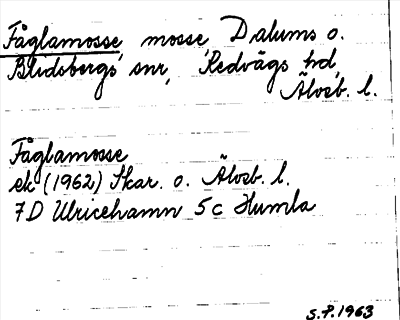 Fåglamosse mosse Dalums o.
Blidsbergs snr, Redvägs hd,
Älvsb. l.
Fåglamosse
ek (1962) Skar. o. Älvsb. l.
7D Ulricehamn 5c Humla
S.P. 1963